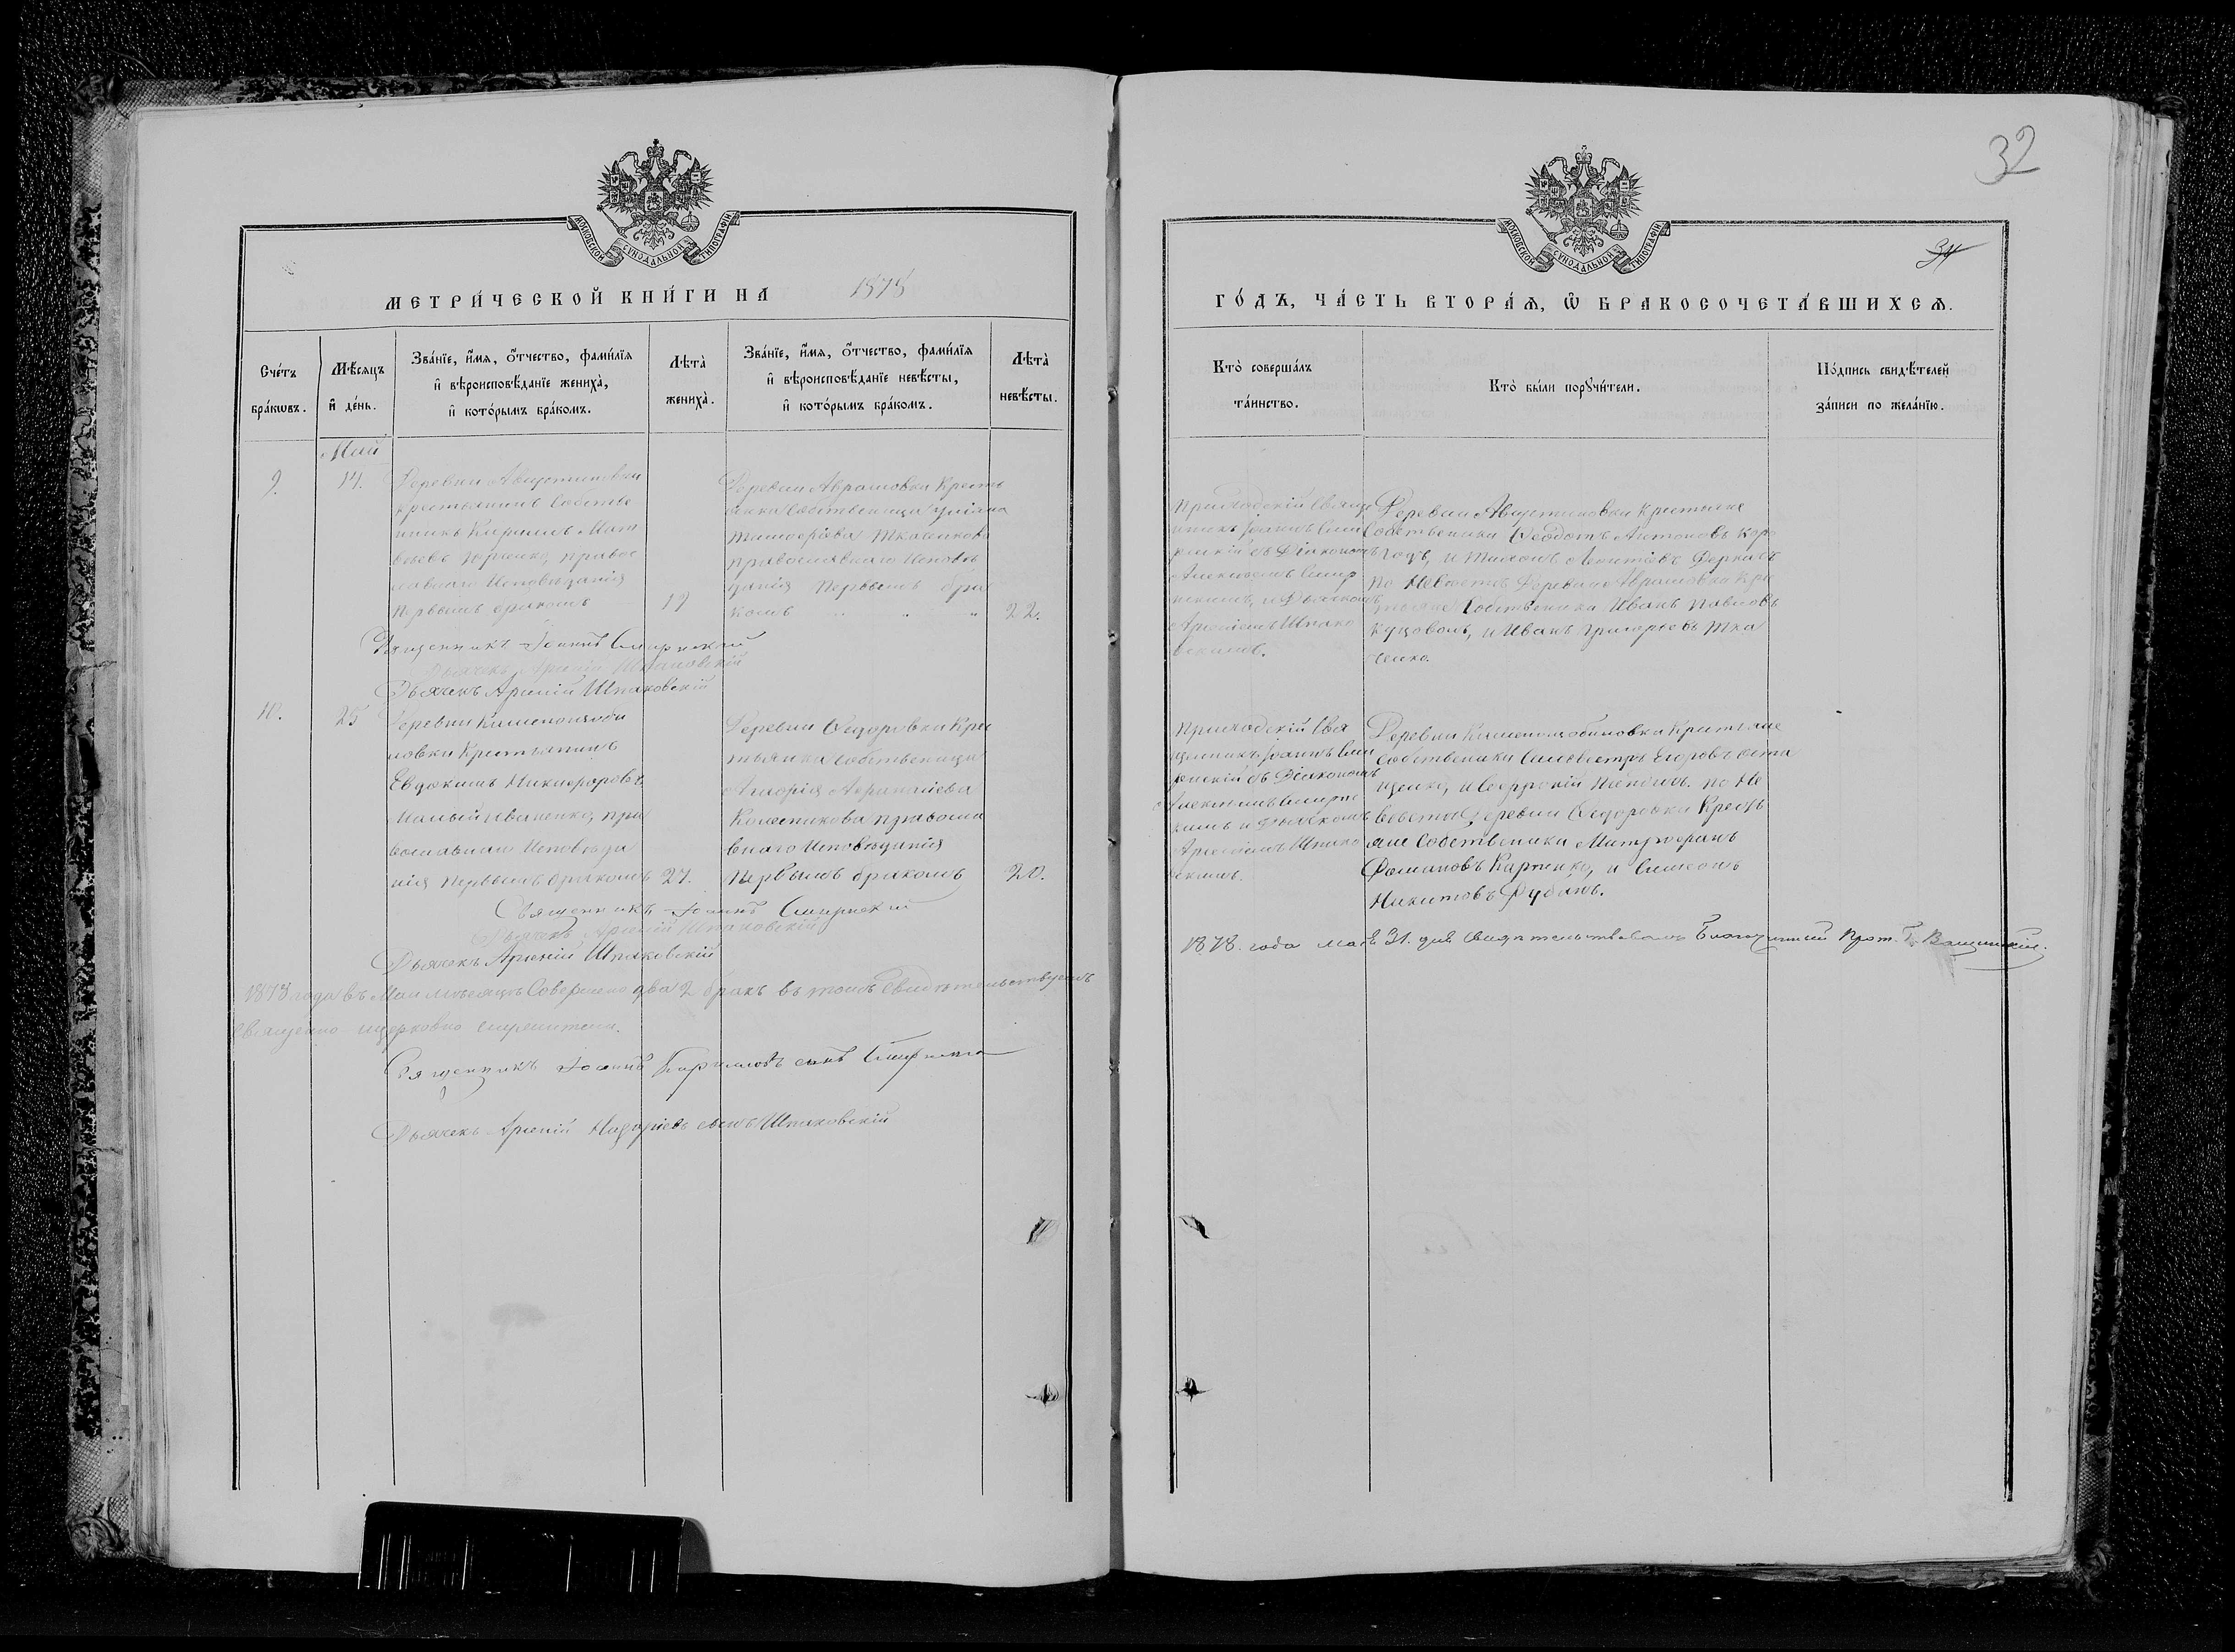 32
34
МОСКОВСКОЙ СѴНОДАЛЬНОЙ ТИПОГРАФІИ
МЕТРИ́ЧЕСКОЙ КНИ́ГИ НА 1878
МОСКОВСКОЙ СѴНОДАЛЬНОЙ ТИПОГРАФІИ
ГО́ДЪ, ЧА́СТЬ ВТОРА́Я, Ѿ БРАКОСОЧЕТА́ВШИХСЯ.
Сче́тъ бра́кѡвъ.
Мѣ́сяцъ и҆ де́нь.
Зва́нїе, и҆́мя, ѻ҆́тчество, фами́лїя
и҆ вѣроисповѣ́данїе жениха̀,
и҆ кото́рымъ бра́комъ.
Лѣта̀ жениха̀.
Зва́нїе, и҆́мя, ѻ҆́тчество, фами́лїя
и҆ вѣроисповѣ́данїе невѣ́сты,
и҆ кото́рымъ бра́комъ.
Лѣта̀ невѣ́сты.
Кто̀ соверша́лъ та́инство.
Кто̀ бы́ли порꙋчи́тели.
По́дпись свидѣ́телей за́писи по жела́нїю.
Май
9.
14.
Деревни Августиновки
крестьянинъ Собстве
нникъ Кириллъ Мат
вѣевъ православнаго Исповѣданія
Первымъ бракомъ
19
Деревни Аврамовки Кресть
янка Собственница
православнаго Исповѣ
данія Первымъ бра
комъ
22.
Приходскій Священ
никъ Іоаннъ Смир
нскій съ Діакономъ
Алексѣемъ Смир
нскимъ, и Дьячкомъ
Арсеніемъ Шпако
вскимъ.
Деревни Августиновки Крестьяне
Собственники Ѳеодотъ Антоновъ
и
По Невѣстѣ Деревни Аврамовки Кре
стьяне Собственники Иванъ Павловъ
и Иванъ Григорьевъ Тка
ченко.
Священникъ Іоаннъ Смирнскій
Дьячекъ Арсеній Шпаковскій
Дьячекъ Арсеній Шпаковскій
10.
25
Деревни
Крестьянинъ
Евдокимъ Никифоровъ
Малый Иваненко, пра
вославнаго Исповѣда
нія Первымъ бракомъ
27.
Деревни Ѳедоровки Кре
стьянка Собственница
Колесникова правосла
внаго Исповѣданія
Первымъ бракомъ
20.
Приходскій Свя
щенникъ Іоаннъ Сми
рнскій съ Діакономъ
Алексѣемъ Смирнс
кимъ и Дьячкомъ
Арсеніемъ Шпако
вскимъ.
Деревни Крестьяне
Собственники Сильвестръ Егоровъ
и по Не
вѣстѣ Деревни Ѳедоровки Кресть
яне Собственники Митрофанъ
Карпенко, и Симеонъ
Никитовъ Рубанъ.
Священникъ Іоаннъ Смирнскій
Дьячекъ Арсеній Шпаковскій
Дьячекъ Арсеній Шпаковскій
1878. года мая 31. дня Свидѣтельствовалъ Благочинный Прот.
1878 года въ Маи мѣсяцѣ Совершено два 2 брака въ томъ Свидѣтельствуемъ
Священно и церковно служители.
Священникъ Іоаннъ Кирилловъ сынъ
Дьячекъ Арсеній Назаріевъ сынъ Шпаковскій